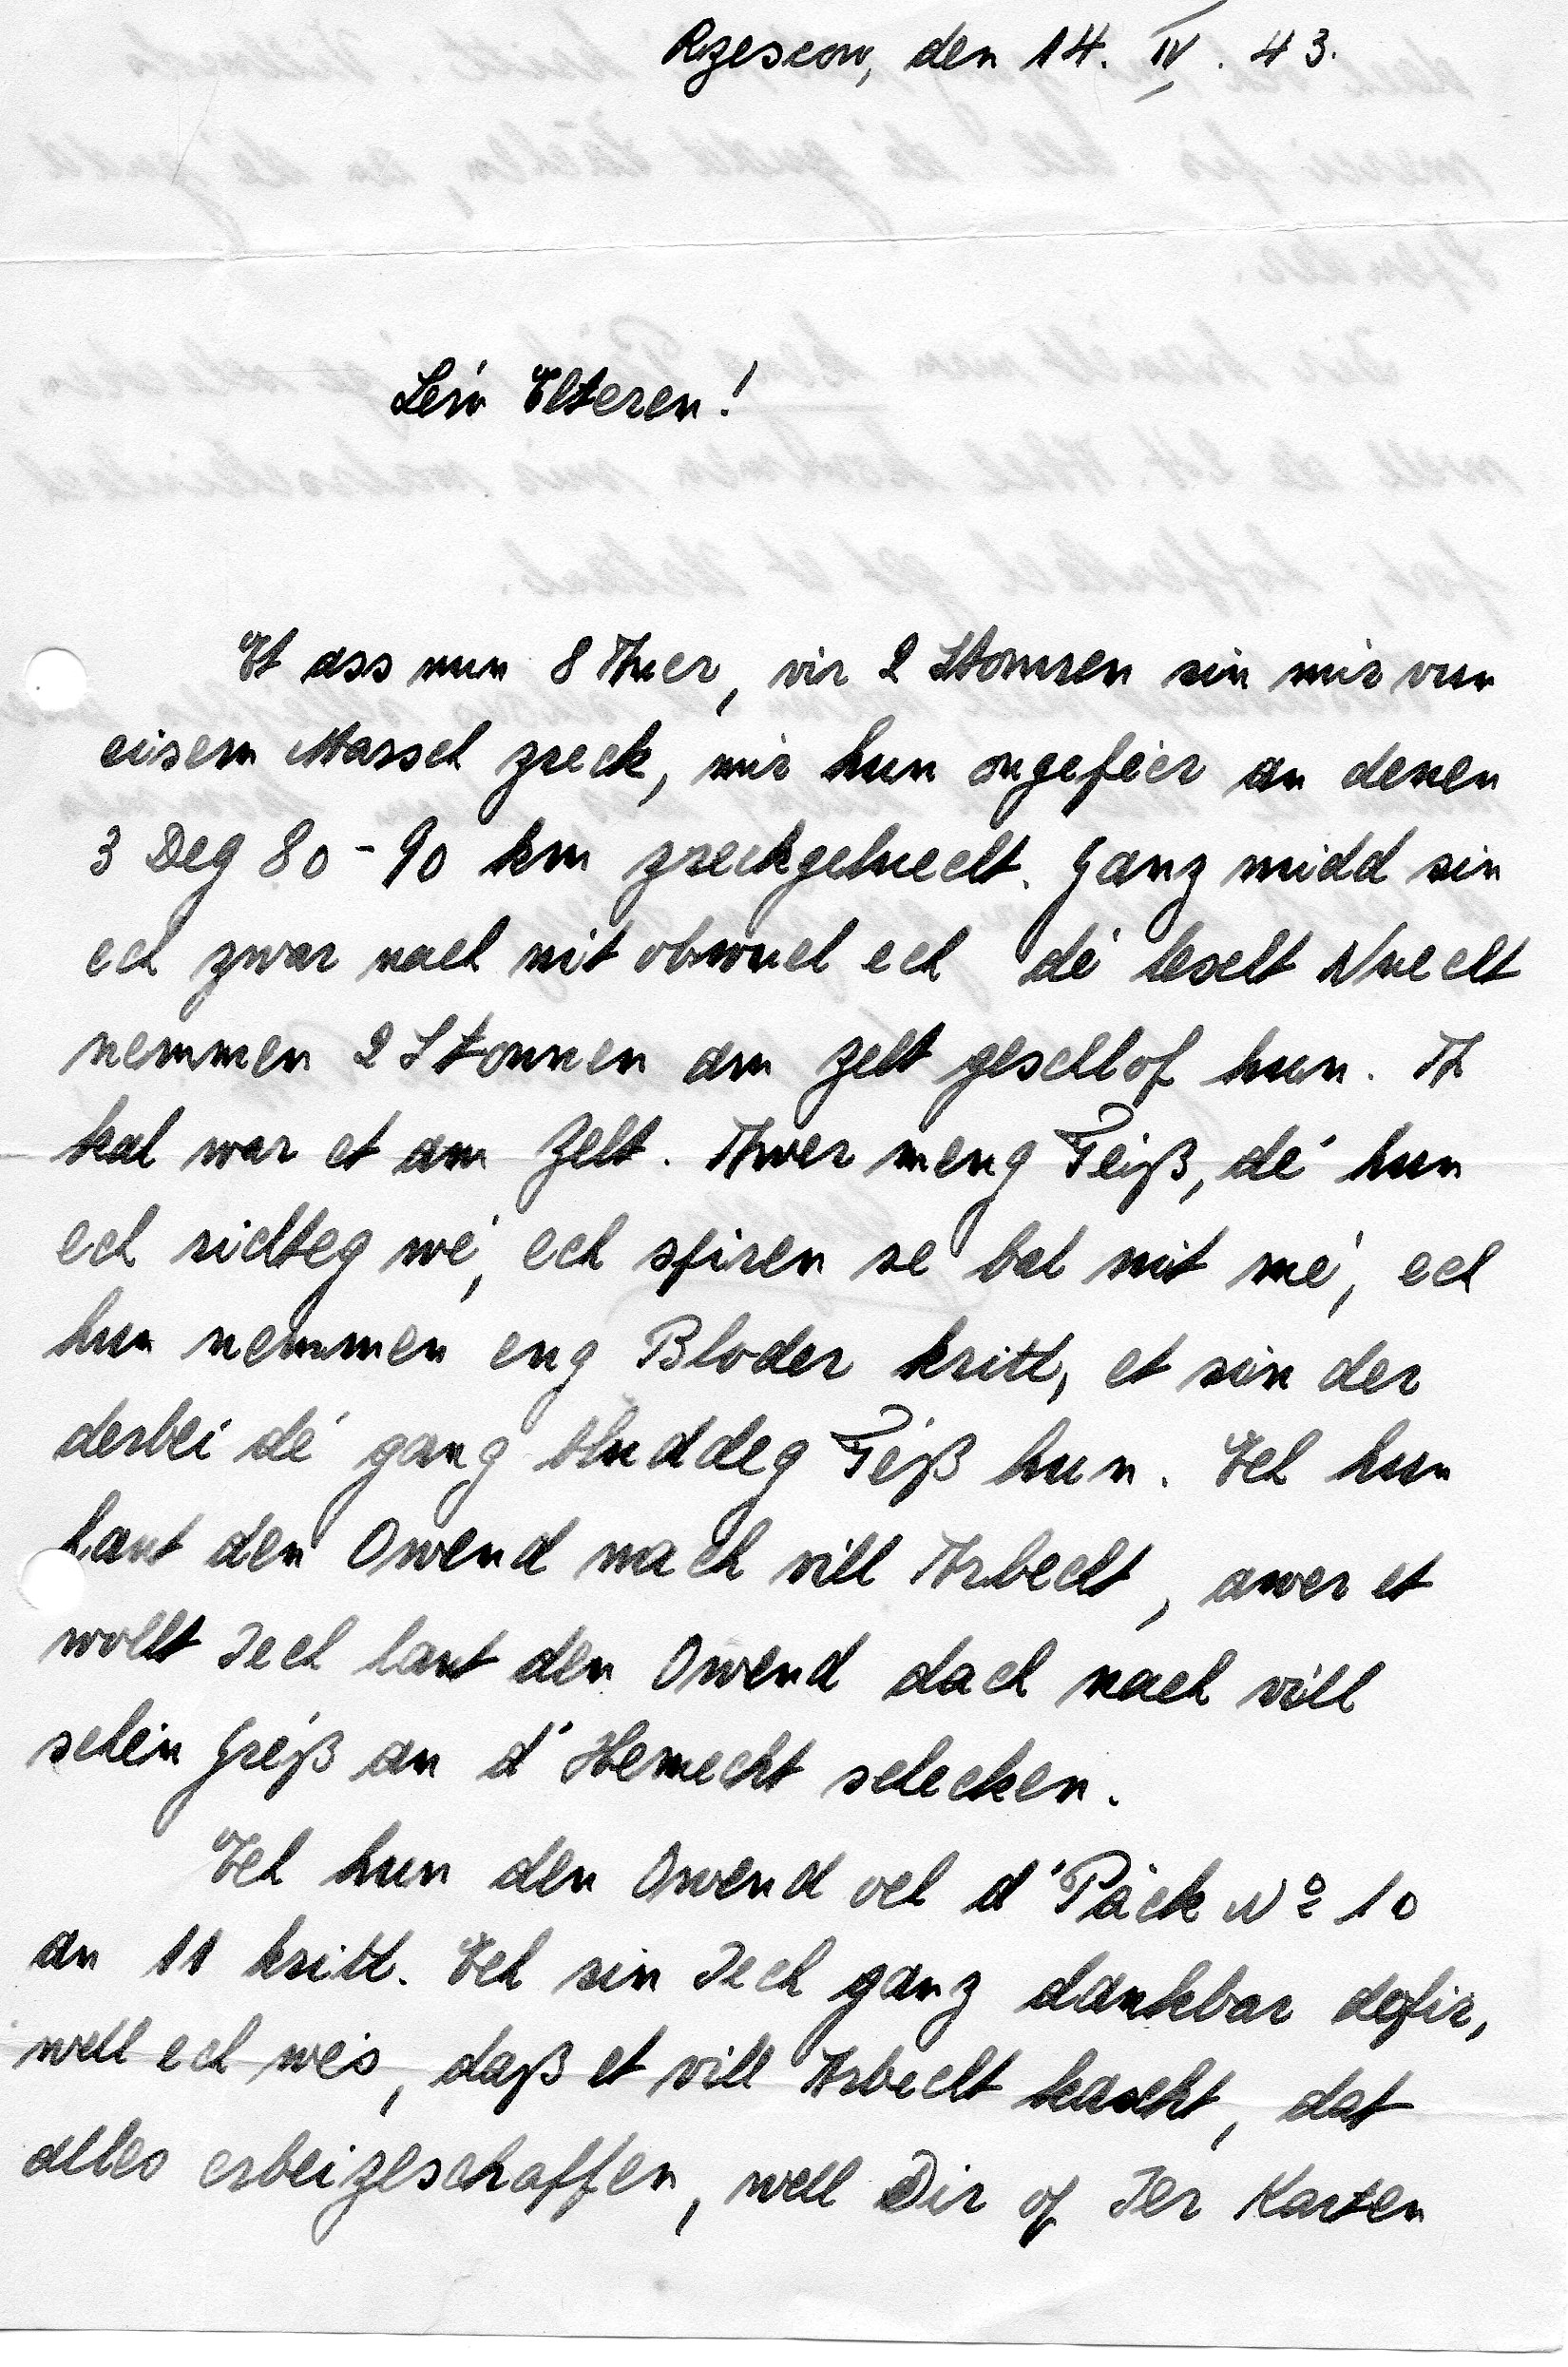 Rzescow, den 14. IV. 43.
Léiw Elteren!
Et ass nun 8 Auer, vir 2 Stonnen sin mir vun
eisem Marsch zreck, mir hun ongeféier an denen
3 Deg 80-90 km zreckgeluecht. Ganz midd sin
ech zwar nach nit obwuel ech dé lescht Nuecht
nemmen 2 Stonnen am Zelt geschlof hun. A
kal war et am Zelt. Awer meng Féiß, dé hun
ech richteg wé, ech spiren se bal nit mé, ech
hun nemmen eng Bloder kritt, et sin der
derbei dé ganz bluddeg Féiß hun. Ech hun
haut den Owend nach vill Arbecht, awer et
wollt Iech haut den Owend dach nach vill
schéin Gréiß an d'Hemecht schecken.
Ech hun den Owend och d'Päck No 10
an 11 kritt. Ech sin Iech ganz dankbar dofir,
well ech wés, daß et vill Arbecht kascht, dat
alles erbeizeschaffen, well Dir of Ier Karten